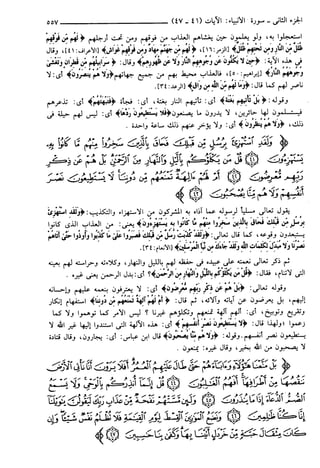 الجزء الثاني - سورة الأنبياء: الآيات (٤١ - ٤٧) ٥٥٧
استعجلوا به، ولو يعلمون حين يغشاهم العذاب من فوقهم ومن تحت أرجلهم ﴿لَهُم مِّن فَوْقِهِمْ
ظُلَلٌ مِّنَ النَّارِ وَمِن تَحْتِهِمْ ظُلَلٌ﴾ [الزمر:١٦]، ﴿لَهُم مِّن جَهَنَّمَ مِهَادٌ وَمِن فَوْقِهِمْ غَوَاشٍ﴾ [الأعراف:٤١]، وقال
في هذه الآية: ﴿حِينَ لَا يَكُفُّونَ عَن وُجُوهِهِمُ النَّارَ وَلَا عَن ظُهُورِهِمْ﴾ وقال: ﴿سَرَابِيلُهُم مِّن قَطِرَانٍ وَتَغْشَىٰ
وُجُوهَهُمُ النَّارُ﴾ [إبراهيم:٥٠]، فالعذاب محيط بهم من جميع جهاتهم ﴿وَلَا هُمْ يُنصَرُونَ﴾ أي: لا
ناصر لهم كما قال: ﴿وَمَا لَهُم مِّنَ اللَّهِ مِن وَاقٍ﴾ [الرعد:٣٤].
وقوله: ﴿بَلْ تَأْتِيهِم بَغْتَةً﴾ أي: تأتيهم النار بغتة، أي: فجأة ﴿فَتَبْهَتُهُمْ﴾ أي: تذعرهم
فيستسلمون لها حائرين، لا يدرون ما يصنعون ﴿فَلَا يَسْتَطِيعُونَ رَدَّهَا﴾ أي: ليس لهم حيلة في
ذلك، ﴿وَلَا هُمْ يُنظَرُونَ﴾ أي: ولا يؤخر عنهم ذلك ساعة واحدة.
﴿وَلَقَدِ اسْتُهْزِئَ بِرُسُلٍ مِّن قَبْلِكَ فَحَاقَ بِالَّذِينَ سَخِرُوا مِنْهُم مَّا كَانُوا بِهِ
يَسْتَهْزِئُونَ ﴿٤١﴾ قُلْ مَن يَكْلَؤُكُم بِاللَّيْلِ وَالنَّهَارِ مِنَ الرَّحْمَٰنِ بَلْ هُمْ عَن ذِكْرِ
رَبِّهِم مُّعْرِضُونَ ﴿٤٢﴾ أَمْ لَهُمْ آلِهَةٌ تَمْنَعُهُم مِّن دُونِنَا لَا يَسْتَطِيعُونَ نَصْرَ
أَنفُسِهِمْ وَلَا هُم مِّنَّا يُصْحَبُونَ ﴿٤٣﴾﴾
يقول تعالى مسلياً لرسوله عما آذاه به المشركون من الاستهزاء والتكذيب: ﴿وَلَقَدِ اسْتُهْزِئَ
بِرُسُلٍ مِّن قَبْلِكَ فَحَاقَ بِالَّذِينَ سَخِرُوا مِنْهُم مَّا كَانُوا بِهِ يَسْتَهْزِئُونَ﴾ يعني: من العذاب الذي كانوا
يستبعدون وقوعه، كما قال تعالى: ﴿وَلَقَدْ كُذِّبَتْ رُسُلٌ مِّن قَبْلِكَ فَصَبَرُوا عَلَىٰ مَا كُذِّبُوا وَأُوذُوا حَتَّىٰ أَتَاهُمْ
نَصْرُنَا وَلَا مُبَدِّلَ لِكَلِمَاتِ اللَّهِ وَلَقَدْ جَاءَكَ مِن نَّبَإِ الْمُرْسَلِينَ﴾ [الأنعام:٣٤].
ثم ذكر تعالى نعمته على عبيده في حفظه لهم بالليل والنهار، وكلاءته وحراسته لهم بعينه
التي لا تنام، فقال: ﴿قُلْ مَن يَكْلَؤُكُم بِاللَّيْلِ وَالنَّهَارِ مِنَ الرَّحْمَٰنِ﴾؟ أي: بدل الرحمن يعني غيره.
وقوله تعالى: ﴿بَلْ هُمْ عَن ذِكْرِ رَبِّهِم مُّعْرِضُونَ﴾ أي: لا يعترفون بنعمه عليهم وإحسانه
إليهم، بل يعرضون عن آياته وآلائه، ثم قال: ﴿أَمْ لَهُمْ آلِهَةٌ تَمْنَعُهُم مِّن دُونِنَا﴾ استفهام إنكار
وتقريع وتوبيخ، أي: ألهم آلهة تمنعهم وتكلؤهم غيرنا؟ ليس الأمر كما توهموا ولا كما
زعموا، ولهذا قال: ﴿لَا يَسْتَطِيعُونَ نَصْرَ أَنفُسِهِمْ﴾ أي: هذه الآلهة التي استندوا إليها غير الله لا
يستطيعون نصر أنفسهم. وقوله: ﴿وَلَا هُم مِّنَّا يُصْحَبُونَ﴾ قال ابن عباس: أي: يجارون، وقال قتادة
لا يصحبون من الله بخير، وقال غيره: يمنعون.
﴿بَلْ مَتَّعْنَا هَٰؤُلَاءِ وَآبَاءَهُمْ حَتَّىٰ طَالَ عَلَيْهِمُ الْعُمُرُ أَفَلَا يَرَوْنَ أَنَّا نَأْتِي الْأَرْضَ
نَنقُصُهَا مِنْ أَطْرَافِهَا أَفَهُمُ الْغَالِبُونَ ﴿٤٤﴾ قُلْ إِنَّمَا أُنذِرُكُم بِالْوَحْيِ وَلَا يَسْمَعُ
الصُّمُّ الدُّعَاءَ إِذَا مَا يُنذَرُونَ ﴿٤٥﴾ وَلَئِن مَّسَّتْهُمْ نَفْحَةٌ مِّنْ عَذَابِ رَبِّكَ لَيَقُولُنَّ يَا وَيْلَنَا
إِنَّا كُنَّا ظَالِمِينَ ﴿٤٦﴾ وَنَضَعُ الْمَوَازِينَ الْقِسْطَ لِيَوْمِ الْقِيَامَةِ فَلَا تُظْلَمُ نَفْسٌ شَيْئًا وَإِن
كَانَ مِثْقَالَ حَبَّةٍ مِّنْ خَرْدَلٍ أَتَيْنَا بِهَا وَكَفَىٰ بِنَا حَاسِبِينَ ﴿٤٧﴾﴾